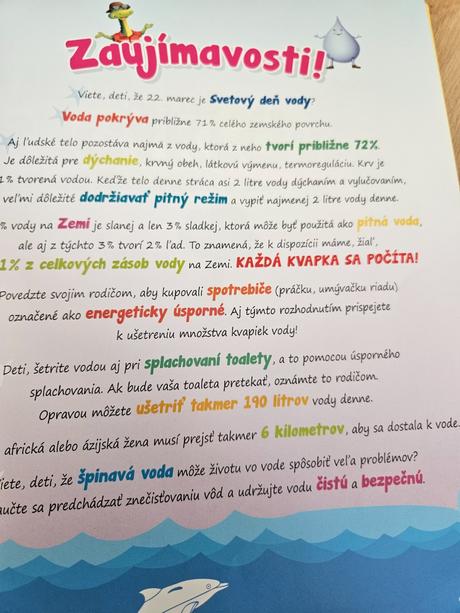 Zaujímavosti!
Viete, deti, že 22. marec je Svetový deň vody?
Voda pokrýva približne 71% celého zemského povrchu.
Aj ľudské telo pozostáva najmä z vody, ktorá z neho tvorí približne 72%.
Je dôležitá pre dýchanie, krvný obeh, látkovú výmenu, termoreguláciu. Krv je
1% tvorená vodou. Keďže telo denne stráca asi 2 litre vody dýchaním a vylučovaním,
veľmi dôležité dodržiavať pitný režim a vypiť najmenej 2 litre vody denne.
% vody na Zemi je slanej a len 3% sladkej, ktorá môže byť použitá ako pitná voda,
ale aj z týchto 3% tvorí 2% ľad. To znamená, že k dispozícii máme, žiaľ,
1% z celkových zásob vody na Zemi. KAŽDÁ KVAPKA SA POČÍTA!
Povedzte svojim rodičom, aby kupovali spotrebiče (práčku, umývačku riadu)
označené ako energeticky úsporné. Aj týmto rozhodnutím prispejete
k ušetreniu množstva kvapiek vody!
Deti, šetrite vodou aj pri splachovaní toalety, a to pomocou úsporného
splachovania. Ak bude vaša toaleta pretekať, oznámte to rodičom.
Opravou môžete ušetriť takmer 190 litrov vody denne.
africká alebo ázijská žena musí prejsť takmer 6 kilometrov, aby sa dostala k vode.
Viete, deti, že špinavá voda môže životu vo vode spôsobiť veľa problémov?
učte sa predchádzať znečisťovaniu vôd a udržujte vodu čistú a bezpečnú.